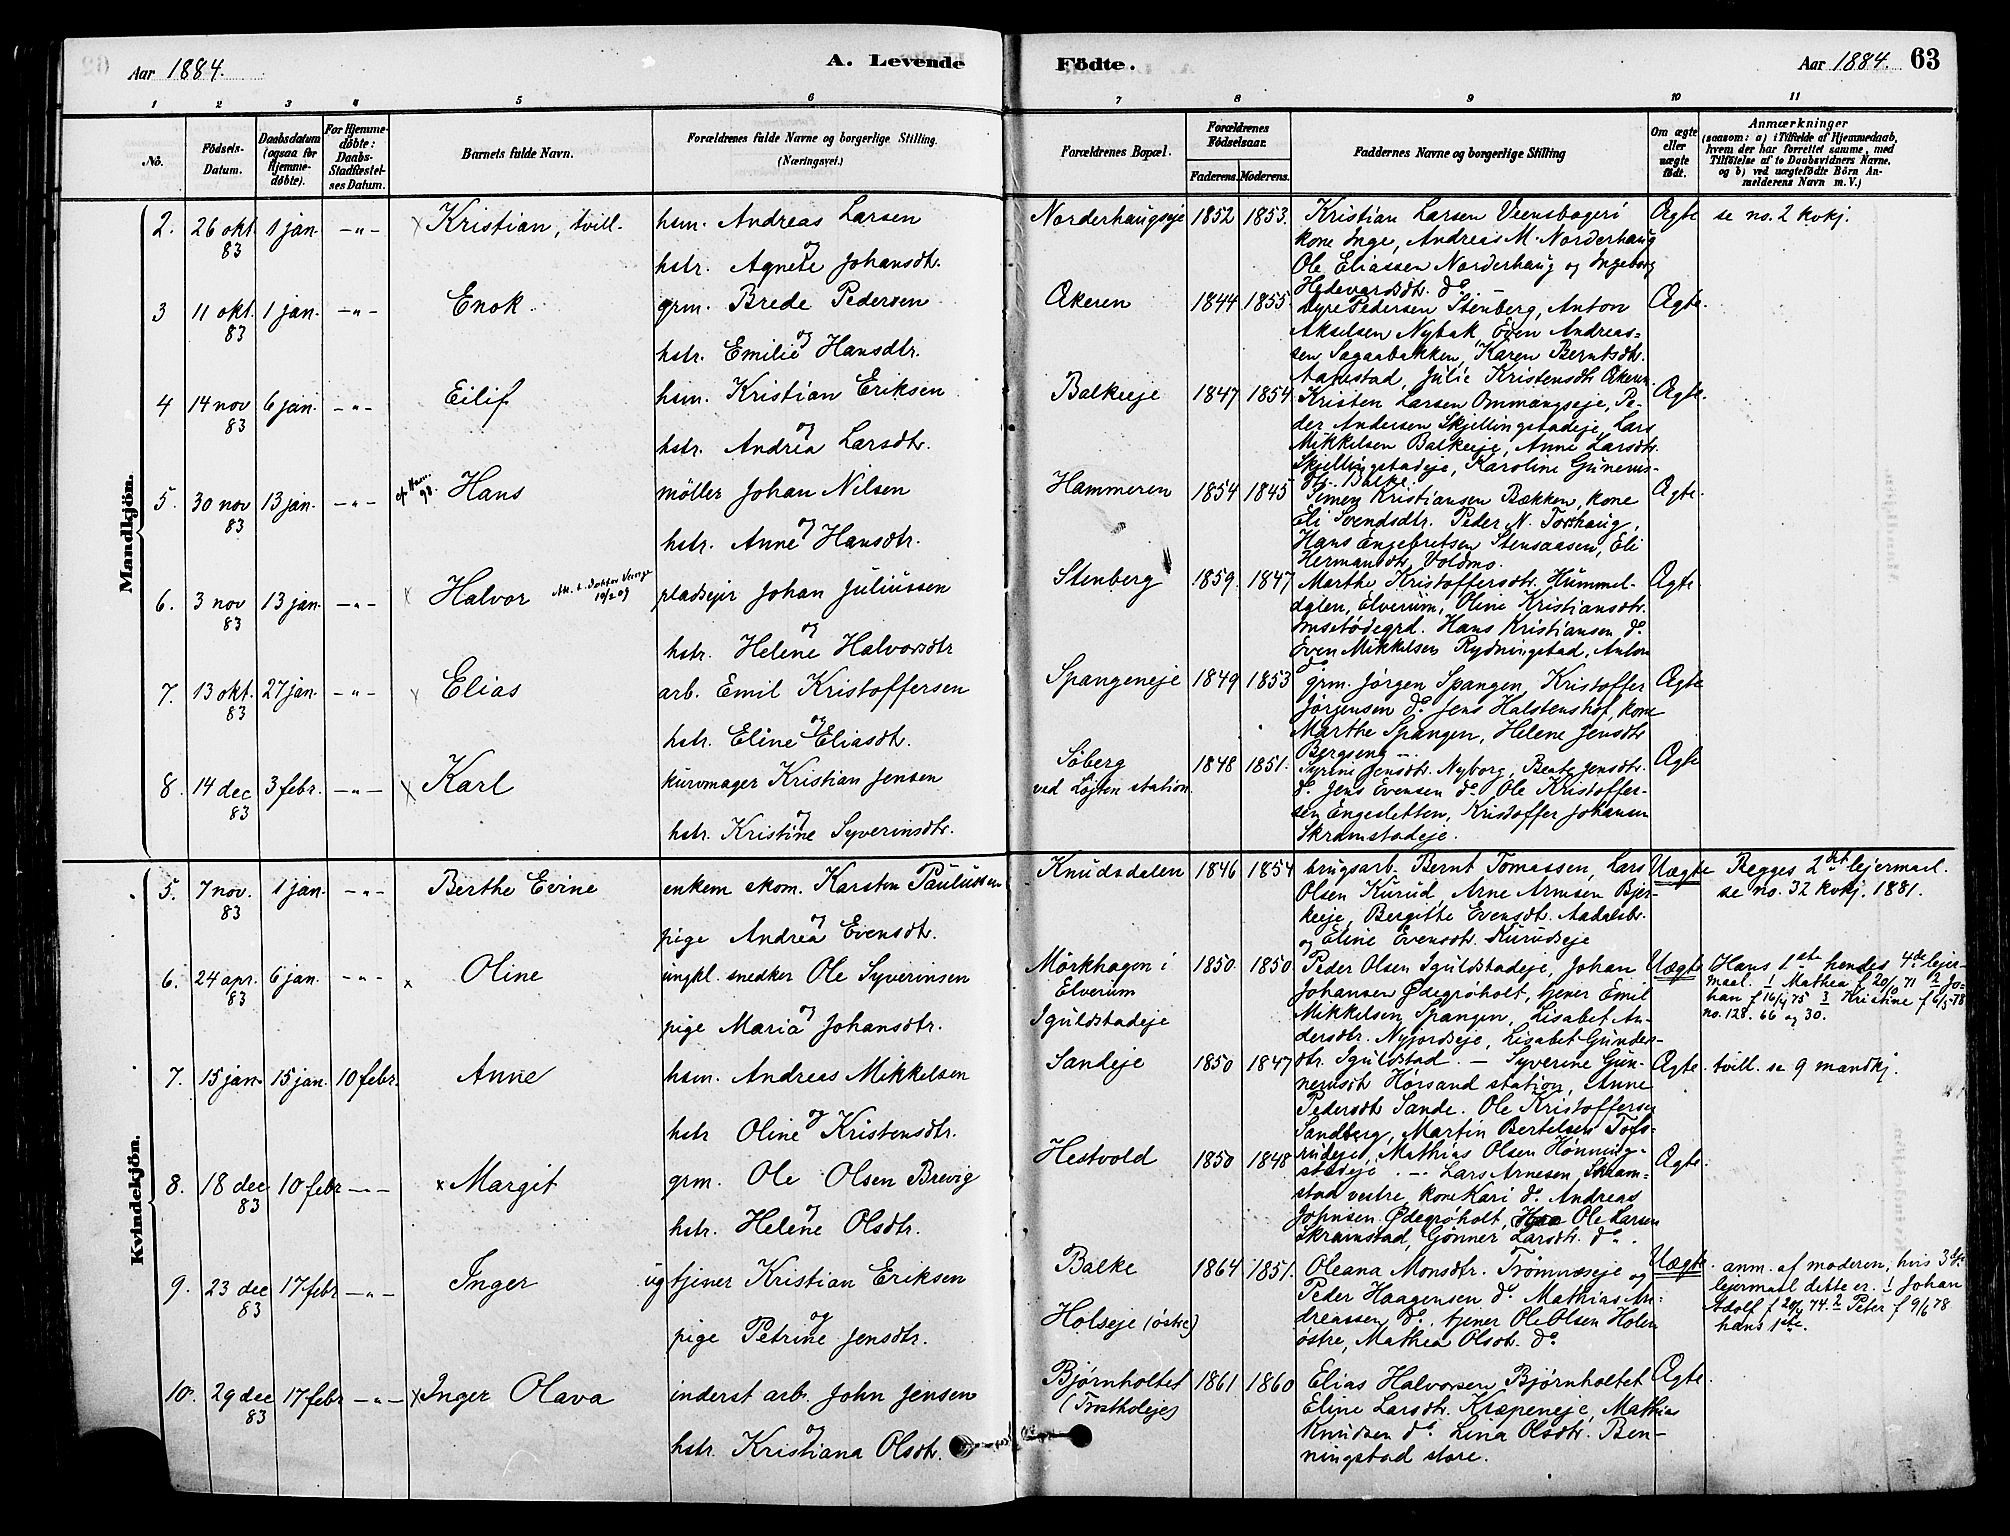 Aar 1884. A. Levende Födte. Aar 1884. 63
1 2 3 4 5 6 7 8 9 10 11
No.
Födsels-
Datum.
Daabsdatum
(ogsaa for
Hjemme-
döbte).
For Hjemme-
døbte:
Daabs-
Stadfæstel-
ses Datum.
Barnets fulde Navn.
Forældrenes fulde Navne og borgerlige Stilling.
(Næringsvei.)
Forældrenes Bopæl.
Forældrenes
Födselsaar.
Faderens. Moderens.
Faddernes Navne og borgerlige Stilling
Om ægte
eller
uægte
födt.
Anmærkninger
(saasom: a) i Tilfælde af Hjemmedaab,
hvem der har forrettet samme, med
Tilföielse af to Daabsvidners Navne,
og b) ved uægtefödte Börn An-
melderens Navn m. V.)
Mandkjön.
2. 26 okt. 83 1 jan. -"- Kristian, tvill.
hsm. Andreas Larsen
og
hstr. Agnete Johansdtr.
Norderhaugseje 1852 1853.
Kristian Larsen Veensbageri
kone Inge, Andreas M. Norderhaug
Ole Eliassen Norderhaug og Ingeborg
Hedevardsdtr. do.
Ægte se no. 2 kvkj.
3 11 okt. 83 1 jan. -"- Enok
grm. Brede Pedersen
og
hstr. Emilie Hansdtr.
Økeren 1844 1855.
Dyre Pedersen Stenberg, Anton
Akselsen Nybak, Even Andreas-
sen Sagaabakken, Karen Berntsdtr.
Aamstad, Julie Kristensdtr Økeren
Ægte.
4 14 nov 83 6 jan. -"- Eilif
hsm. Kristian Eriksen
og
hstr. Andrea Larsdtr.
Balkeeje 1847 1854.
Kristen Larsen Ommangseje, Pe-
der Andersen Skjellingstadeje, Lars
Mikkelsen Balkeeje, Anne Larsdtr.
Skjellingstadeje, Karoline Guneriis-
dtr. Balke.
Ægte.
5. 30 nov 83 13 jan. -"- Hans
möller Johan Nilsen
og
hstr. Anne Hansdtr.
Hammeren 1854 1845
Simen Kristiansen Bækken, kone
Eli Svendsdtr. Peder N. Torshaug,
Hans Engebretsen Stensaasen, Eli
Hermansdtr. Voldmo.
Ægte.
6. 3 nov 83 13 jan. -"- Halvor
10/2 09
pladsejer Johan Juliussen
og
hstr. Helene Halvorsdtr
Stenberg 1859. 1847
Marthe Kristoffersdtr. Hummel-
dalen, Elverum, Oline Kristiansdtr.
Imsetødegrd. Hans Kristiansen do.
Even Mikkelsen Rydningstad, Anton
do.
Ægte
7. 13 okt. 83 27 jan. -"- Elias
arb. Emil Kristoffersen
og
hstr. Eline Eliasdtr.
Spangeneje 1849 1853
grm. Jørgen Spangen, Kristoffer
Jörgensen do. Jens Halstenshof, kone
Marthe Spangen, Helene Jensdtr
Bergseng.
Ægte
8. 14 dec 83 3 febr. -"- Karl
kurvmager Kristian Jensen
og
hstr. Kristine Syverinsdtr.
Søberg
ved Løjten station. 1848 1851.
Syrine Jensdtr. Nyborg, Beate Jensdtr.
do. Jens Evensen do. Ole Kristoffer-
sen Engesletten, Kristoffer Johansen
Skramstadeje.
Ægte
Kvindekjön.
5. 7 nov. 83 1 jan. -"- Berthe Evine
enkem. skom. Karsten Pauliussen
og
pige Andrea Evensdtr.
Knudsdalen 1846 1854
brugsarb. Bernt Tomassen, Lars
Olsen Kurud, Arne Arnesen Bjer-
keeje, Bergitte Evensdtr. Aadalsbr.
og Eline Evensdtr. Kurudseje
Uægte Begges 2det lejermaal.
se no. 32 kvkj. 1881.
6. 24 apr. 83 6 jan. -"- Oline
ungkl. snedker Ole Syverinsen
og
pige Maria Johansdtr.
Mörkhagen i
Elverum
Iguldstadeje 1850 1850
Peder Olsen Iguldstadeje, Johan
Johansen Ødegrøholt, tjener Emil
Mikkelsen Spangen, Lisabet An-
dersdtr. Nyjordseje, Lisabet Gunders-
dtr. Iguldstad.
Uægte Hans 1ste hendes 4de lejer-
maal. 1 Mathea f 20/10 71 2 Jo-
han f 16/4 75 3 Kristine f 6/5 78
no. 128. 66 og 30.
7. 15 jan. 15 jan. 10 febr. Anne
hsm. Andreas Mikkelsen
og
hstr Oline Kristensdtr.
Sandeje 1850 1847
Syverine Gun-
nerusdtr Hørsand station, Anne
Pedersdtr Sande. Ole Kristoffersen
Sandberg, Martin Bertelsen Tofs-
rudeje, Mathias Olsen Hønning-
stadeje.
Ægte. tvill. se 9 mandkj.
8. 18 dec 83 10 febr -"- Margit
grm. Ole Olsen Brevig
og
hstr. Helene Olsdtr.
Hestvold 1850 1848
Lars Arnesen Skram-
stad vestre, kone Kari do. Andreas
Johnsen Ødegrøholt, Ole Larsen
Skramstad, Gönner Larsdtr. do.
Ægte.
9. 23 dec 83 17 febr -"- Inger
ug tjener Kristian Eriksen
og
pige Petrine Jensdtr.
Balke
Holseje (østre) 1864 1851.
Oleana Monsdtr. Trömnæseje og
Peder Haagensen do. Mathias An-
dreassen do. tjener Ole Olsen Holen
østre, Mathea Olsdtr. do
Uægte. anm. af moderen, hvis 3dje
lejermaal dette er. 1 Johan
Adolf f 20/4 74. 2 Peter f 9/6 78
hans 1ste.
10. 29 dec 83 17 febr -"- Inger Olava
inderst arb. John Jensen
og
hstr. Kristiana Olsdtr.
Bjørnholtet
(Trostholeje) 1861 1860
Elias Halvorsen Bjørnholtet
Eline Larsdtr. Kleepeneje, Mathias
Knudsen do. Lina Olsdtr. Ben-
ningstad store.
Ægte.